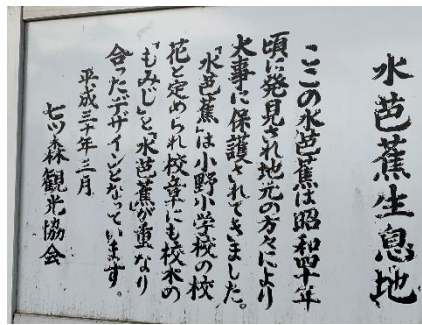 水芭蕉生息地
ここの水芭蕉は昭和四十年
頃に発見され地元の方々により
大事に保護されてきました。
「水芭蕉」は小野小学校の校
花と定められ校章にも校木の
「もみじ」と「水芭蕉」が重なり
合ったデザインとなっています。
平成三十年三月
七ツ森観光協会